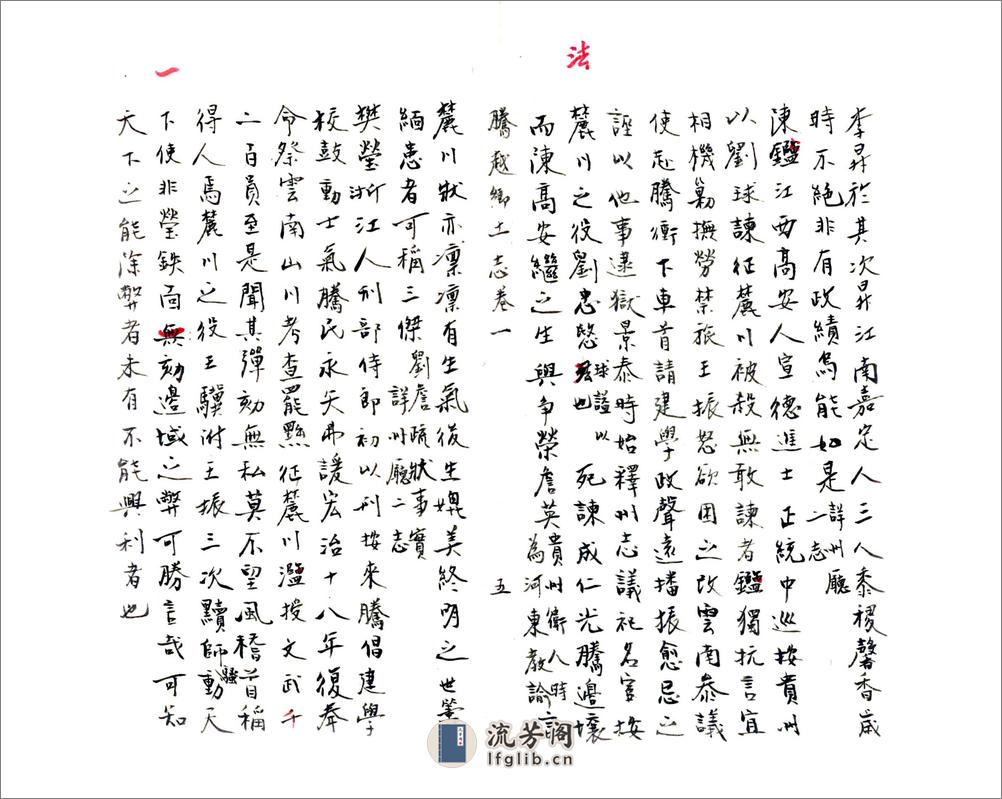 法
李昇於其次昇江南嘉定人三人黍稷馨香歲
時不絕非有政績烏能如是詳州廳二志
陳鑑江西高安人宣德進士正統中巡按貴州
以劉球諫征麓川被殺無敢諫者鑑獨抗言宜
相機勦撫勞禁旅王振怒欲困之改雲南參議
使赴騰衝下車首請建學政聲遠播振愈忌之
誣以他事逮獄景泰時始釋州志議祀名宦按
麓川之役劉忠愍球諡也以死諫成仁光騰邊壤
而陳高安繼之生與爭榮詹英貴州衛人時為河東教諭言
騰越鄉土志卷一 五
麓川狀亦凜凜有生氣後生媲美終明之世籌
緬患者可稱三傑劉詹疏狀事實詳州廳二志
樊瑩浙江人刑部侍郎初以刑按來騰倡建學
校鼓動士氣騰民永矢弗諼宏治十八年復奉
命祭雲南山川考查罷黜征麓川濫授文武千
二百員至是聞其彈劾無私莫不望風稽首稱
得人焉麓川之役王驥附王振三次黷師騷動天
下使非瑩鉄面無刻邊域之弊可勝言哉可知
天下之能除弊者未有不能興利者也
一
流芳阁
lfglib.cn